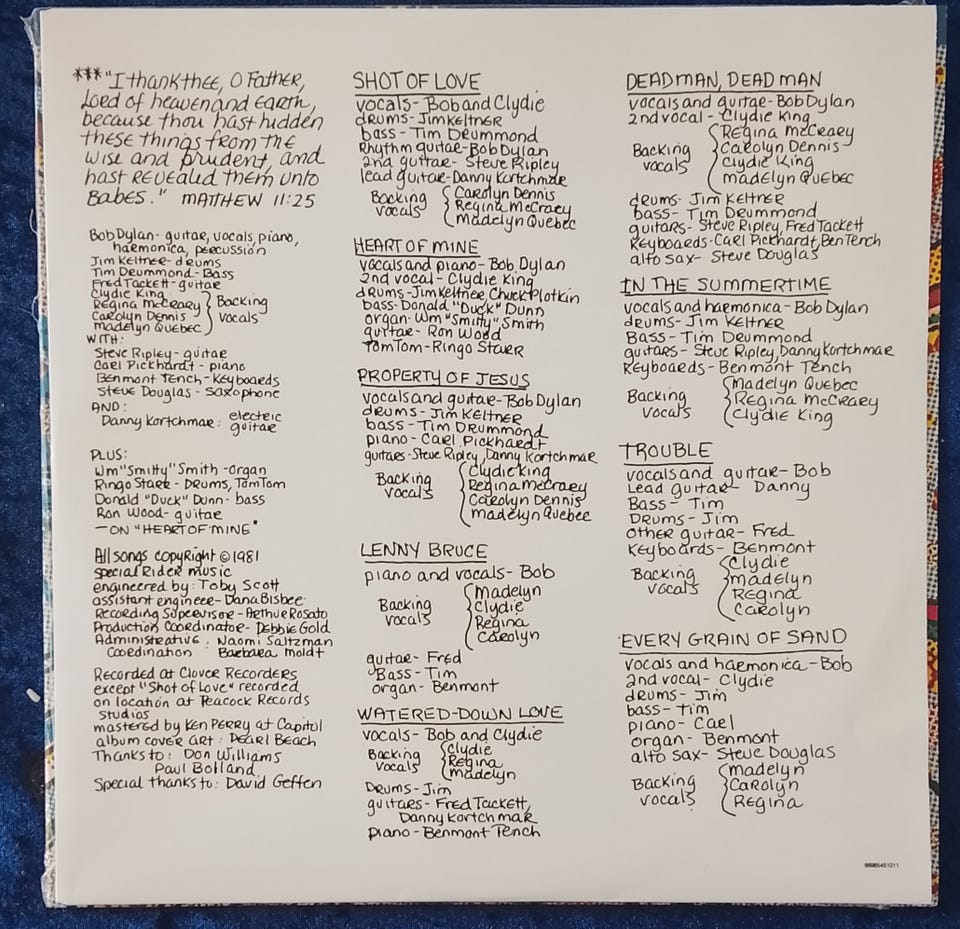 ***"I thank thee, O Father,
Lord of heaven and Earth,
because thou hast hidden
these things from the
wise and prudent, and
hast REVEALED them unto
Babes." MATTHEW 11:25
Bob Dylan- guitar, vocals, piano,
harmonica, percussion
Jim Keltner- drums
Tim Drummond- Bass
Fred Tackett- guitar
Clydie King
Regina McCrary
Carolyn Dennis
Madelyn Quebec
Backing
vocals
WITH:
Steve Ripley- guitar
Carl Pickhardt- piano
Benmont Tench- Keyboards
Steve Douglas- Saxophone
AND:
Danny Kortchmar: electric
guitar
PLUS:
Wm "Smitty" Smith -organ
Ringo Starr- Drums, TomTom
Donald "Duck" Dunn- bass
Ron Wood- guitar
— ON "HEART OF MINE"
All songs copyright ©1981
Special Rider music
engineered by: Toby Scott
assistant engineer- Dana Bisbee
Recording Supervisor- Arthur Rosato
Production Coordinator- Debbie Gold
Administrative : Naomi Saltzman
Coordination Barbara Moldt
Recorded at Clover Recorders
except "Shot of Love" recorded
on location at Peacock Records
Studios
mastered by Ken Perry at Capitol
album cover art: Pearl Beach
Thanks to: Don Williams
Paul Bolland
Special thanks to: David Geffen
SHOT OF LOVE
vocals- Bob and Clydie
drums- Jim Keltner
bass- Tim Drummond
Rhythm guitar- Bob Dylan
2nd guitar- Steve Ripley
lead guitar- Danny Kortchmar
Backing
vocals
Carolyn Dennis
Regina McCrary
Madelyn Quebec
HEART OF MINE
vocals and piano- Bob Dylan
2nd vocal- Clydie King
drums- Jim Keltner, Chuck Plotkin
bass- Donald "Duck" Dunn
organ- Wm "Smitty" Smith
guitar- Ron Wood
TomTom- Ringo Starr
PROPERTY OF JESUS
vocals and guitar- Bob Dylan
drums- Jim Keltner
bass- Tim Drummond
piano- Carl Pickhardt
guitars- Steve Ripley, Danny Kortchmar
Backing
vocals
Clydie King
Regina McCrary
Carolyn Dennis
Madelyn Quebec
LENNY BRUCE
piano and vocals- Bob
Backing
vocals
Madelyn
Clydie
Regina
Carolyn
guitar- Fred
Bass- Tim
organ- Benmont
WATERED-DOWN LOVE
vocals- Bob and Clydie
Backing
vocals
Clydie
Regina
Madelyn
Drums- Jim
guitars- Fred Tackett,
Danny Kortchmar
piano- Benmont Tench
DEAD MAN, DEAD MAN
vocals and guitar- Bob Dylan
2nd vocal- Clydie King
Backing
vocals
Regina McCrary
Carolyn Dennis
Clydie King
Madelyn Quebec
drums- Jim Keltner
bass- Tim Drummond
guitars- Steve Ripley, Fred Tackett
Keyboards- Carl Pickhardt, Ben Tench
alto sax- Steve Douglas
IN THE SUMMERTIME
vocals and harmonica- Bob Dylan
drums- Jim Keltner
Bass- Tim Drummond
guitars- Steve Ripley, Danny Kortchmar
Keyboards- Benmont Tench
Backing
vocals
Madelyn Quebec
Regina McCrary
Clydie King
TROUBLE
vocals and guitar- Bob
Lead guitar- Danny
Bass- Tim
Drums- Jim
other guitar- Fred
Keyboards- Benmont
Backing
vocals
Clydie
Madelyn
Regina
Carolyn
EVERY GRAIN OF SAND
vocals and harmonica- Bob
2nd vocal- Clydie
drums- Jim
bass- Tim
piano- Carl
organ- Benmont
alto sax- Steve Douglas
Backing
vocals
Madelyn
Carolyn
Regina
88985451011